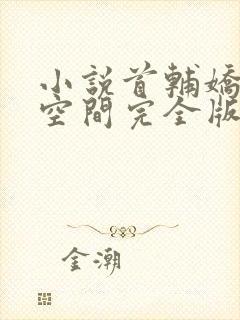 小說首輔嬌
空間完全版
金潮